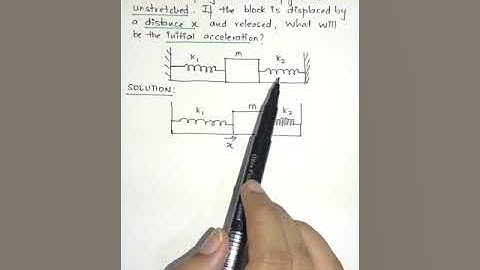 unstretched. If the block is displaced by
a distance x and released, what will
be the initial acceleration?
k1 m k2
SOLUTION:
k1 m k2
x